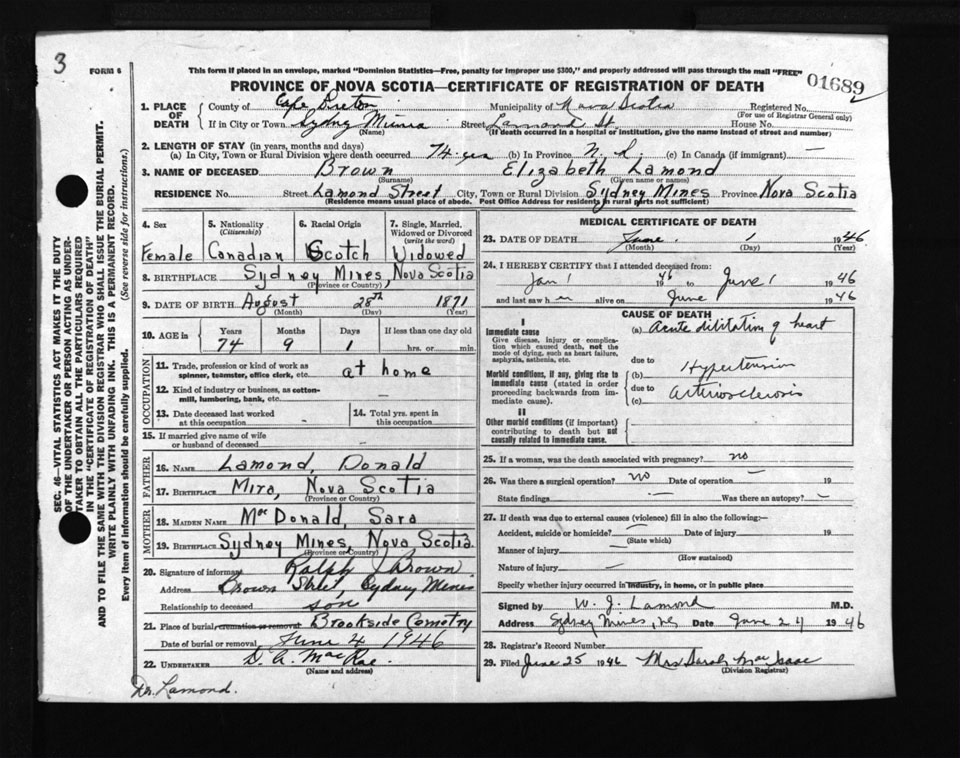 3
FORM 6
This form if placed in an envelope, marked "Dominion Statistics—Free, penalty for improper use $300," and properly addressed will pass through the mail "FREE"
01689
PROVINCE OF NOVA SCOTIA—CERTIFICATE OF REGISTRATION OF DEATH
1. PLACE OF DEATH
County of Cape Breton Municipality of Nova Scotia Registered No.
(For use of Registrar General only)
If in City or Town Sydney Mines Street Lamond St. House No.
(Name) (If death occurred in a hospital or institution, give the name instead of street and number)
2. LENGTH OF STAY (in years, months and days)
(a) In City, Town or Rural Division where death occurred 74 yrs (b) In Province N.S. (c) In Canada (if immigrant) —
3. NAME OF DECEASED Brown Elizabeth Lamond
(Surname) (Given name or names)
RESIDENCE No. Street Lamond Street City, Town or Rural Division Sydney Mines Province Nova Scotia
(Residence means usual place of abode. Post Office Address for residents in rural parts not sufficient)
4. Sex
Female
5. Nationality
(Citizenship)
Canadian
6. Racial Origin
Scotch
7. Single, Married, Widowed or Divorced
(write the word)
Widowed
8. BIRTHPLACE Sydney Mines, Nova Scotia
(Province or Country)
9. DATE OF BIRTH August 28th 1871
(Month) (Day) (Year)
10. AGE in
Years Months Days If less than one day old
74 9 1 hrs. or min.
OCCUPATION
11. Trade, profession or kind of work as
spinner, teamster, office clerk, etc. at home
12. Kind of industry or business, as cotton-
mill, lumbering, bank, etc. —
13. Date deceased last worked
at this occupation
14. Total yrs. spent in
this occupation
15. If married give name of wife
or husband of deceased —
FATHER
16. NAME Lamond, Donald
17. BIRTHPLACE Mira, Nova Scotia
(Province or Country)
MOTHER
18. MAIDEN NAME MacDonald, Sara
19. BIRTHPLACE Sydney Mines, Nova Scotia
(Province or Country)
20. Signature of informant Ralph Brown
Address Brown Street, Sydney Mines
Relationship to deceased son
21. Place of burial, cremation or removal Brookside Cemetry
Date of burial or removal June 4 1946
22. UNDERTAKER D. A. MacRae
(Name and address)
Dr. Lamond.
MEDICAL CERTIFICATE OF DEATH
23. DATE OF DEATH June 1 1946
(Month) (Day) (Year)
24. I HEREBY CERTIFY that I attended deceased from:
Jan 1 1946 to June 1 1946
and last saw h er alive on June 1946
CAUSE OF DEATH
I
Immediate cause
Give disease, injury or complica-
tion which caused death, not the
mode of dying, such as heart failure,
asphyxia, asthenia, etc.
(a) Acute dilitation of heart
due to
Morbid conditions, if any, giving rise to
immediate cause (stated in order
proceeding backwards from im-
mediate cause).
(b) Hypertension
due to
(c) arteriosclerosis
II
Other morbid conditions (if important)
contributing to death but not
causally related to immediate cause.
25. If a woman, was the death associated with pregnancy? no
26. Was there a surgical operation? no Date of operation — 19
State findings — Was there an autopsy? —
27. If death was due to external causes (violence) fill in also the following:—
Accident, suicide or homicide? — Date of injury 19
(State which)
Manner of injury —
(How sustained)
Nature of injury —
Specify whether injury occurred in industry, in home, or in public place
Signed by W. J. Lamond M.D.
Address Sydney Mines, NS Date June 24 1946
28. Registrar's Record No.
29. Filed June 25 1946 Mrs Sarah MacIsaac
(Division Registrar)
SEC. 46—VITAL STATISTICS ACT MAKES IT THE DUTY
OF THE UNDERTAKER OR PERSON ACTING AS UNDER-
TAKER TO OBTAIN ALL THE PARTICULARS REQUIRED
IN THE "CERTIFICATE OF REGISTRATION OF DEATH"
AND TO FILE THE SAME WITH THE DIVISION REGISTRAR WHO SHALL ISSUE THE BURIAL PERMIT.
WRITE PLAINLY WITH UNFADING INK. THIS IS A PERMANENT RECORD.
Every item of information should be carefully supplied. (See reverse side for instructions.)